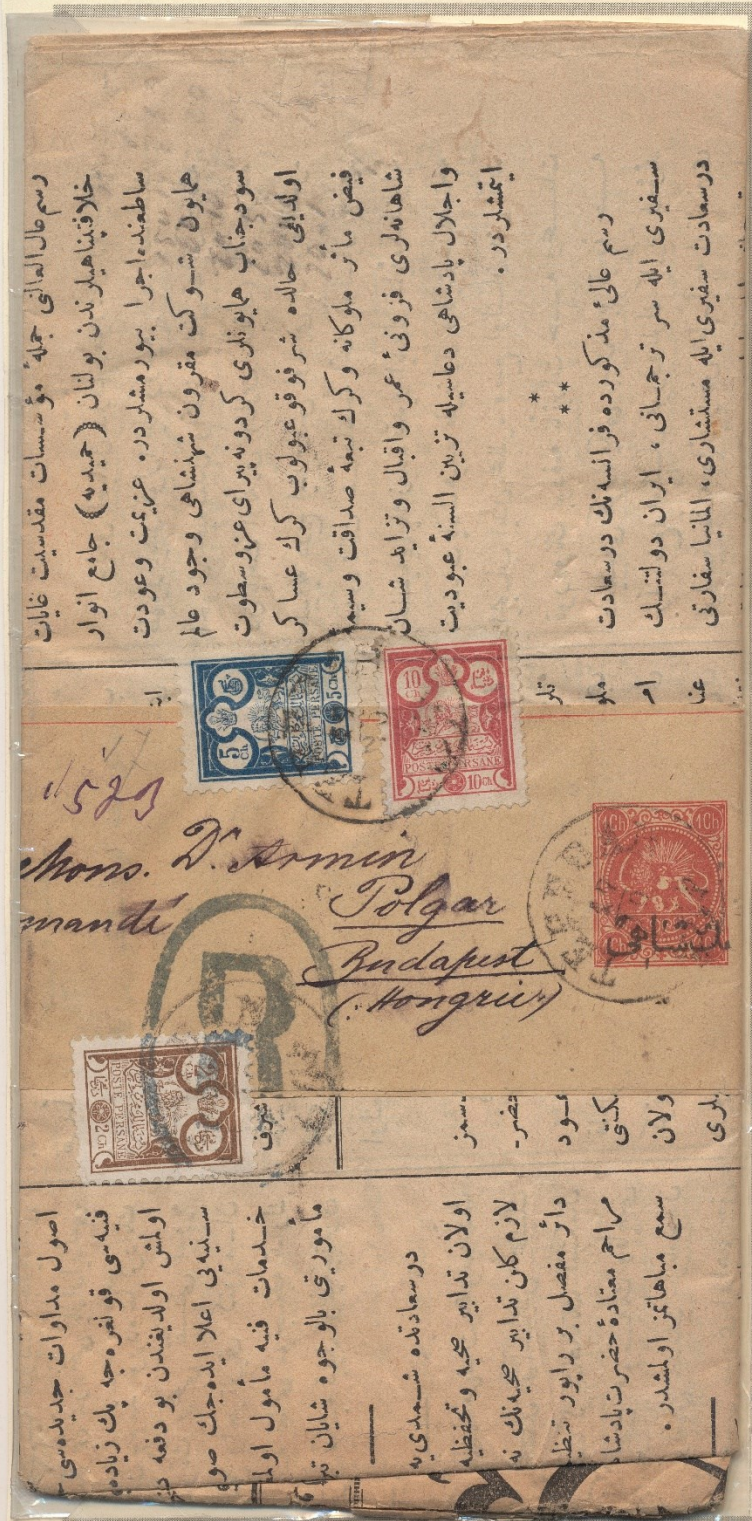 رسم عال العالئ جملهٔ مؤسسات مقدسیت غایات
خلافپناهیلرندن بولنان (حمیدیه) جامع انوار
ساطعنده اجرا بیورمشلردر. عزیمت وعودت
همایون شوکت مقرون شهنشاهی وجود عالم
سود جناب همایونلری کردونه پیرای عز وسطوت
اولدیغی حالده شرفوقوعبولوب کرك عساکر
فیض مآثر ملوکانه وکرك تبعهٔ صداقت وسیمه
شاهانه‌لری فزونئ عمر واقبال وتزاید شان
واجلال پادشاهی دعاسیله تزیین السنهٔ عبودیت
ایتمشلردر.
*
* *
رسم عالئ مذکورده فرانسه‌نك درسعادت
سفیری ایله سر ترجمانی، ایران دولتنك
درسعادت سفیری ایله مستشاری، المانیا سفارتی
عنا
ام
ملو
تلو
5 Ch
5 Ch
POSTE PERSANE
10 Ch
POSTE PERSANE
10 Ch
523
Mons. Dr Armin
Polgar
Budapest
(Hongrie)
R
10 Ch
10 Ch
یك شاهی
POSTE PERSANE
2 Ch
شرف
سمز
حضر
ـود
ولان
لری
اصول مداوات جدیده‌سی
فنیه‌سی قونغره‌جه پك زیاده
اولمش اولدیغندن بو دفعه
سنیه‌یی اعلا ایده‌جك صو
خدمات فنیه مأمول اولم
مأموریتی بالوجوه شایان
درسعادتده شمدی‌یه
اولان تدابیر صحیه وتحفظیه
لازم کلن تدابیر صحیه‌نك نه
دائر مفصل بر راپور تنظیم
مراحم معتادهٔ حضرت پادشا
سمع مباهاتمز اولمشدر.